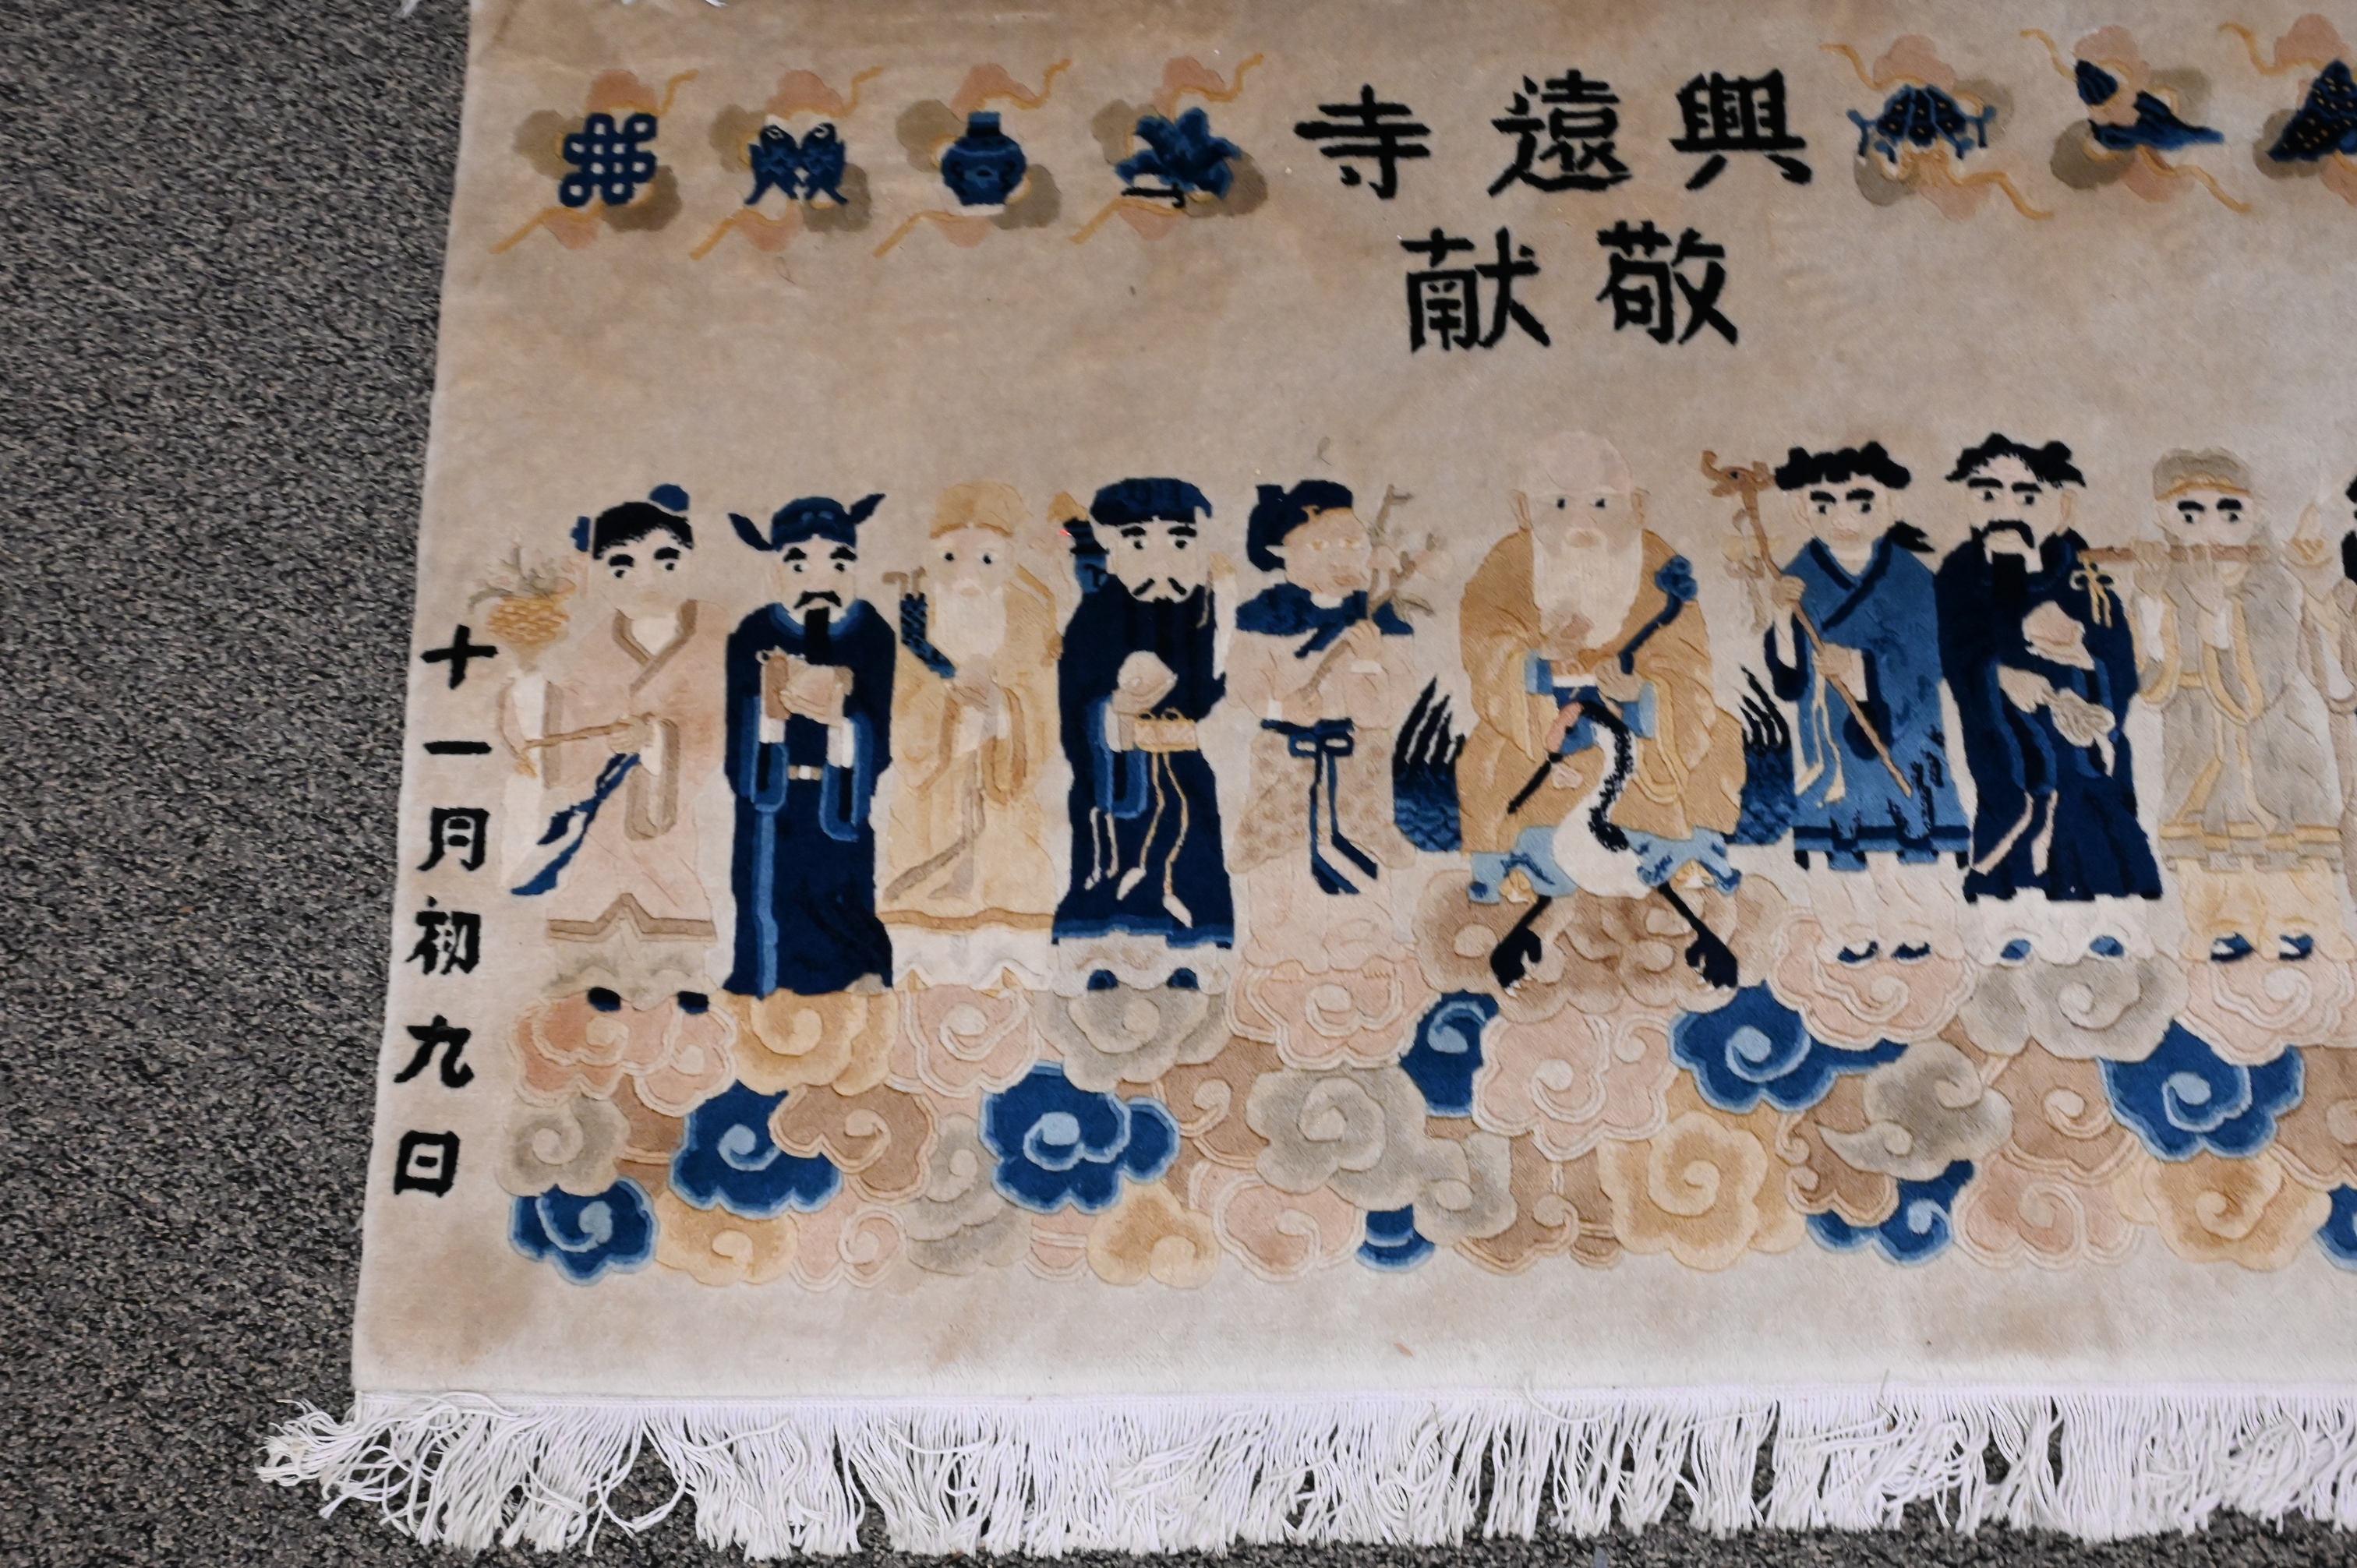 興遠寺
敬献
十一月初九日